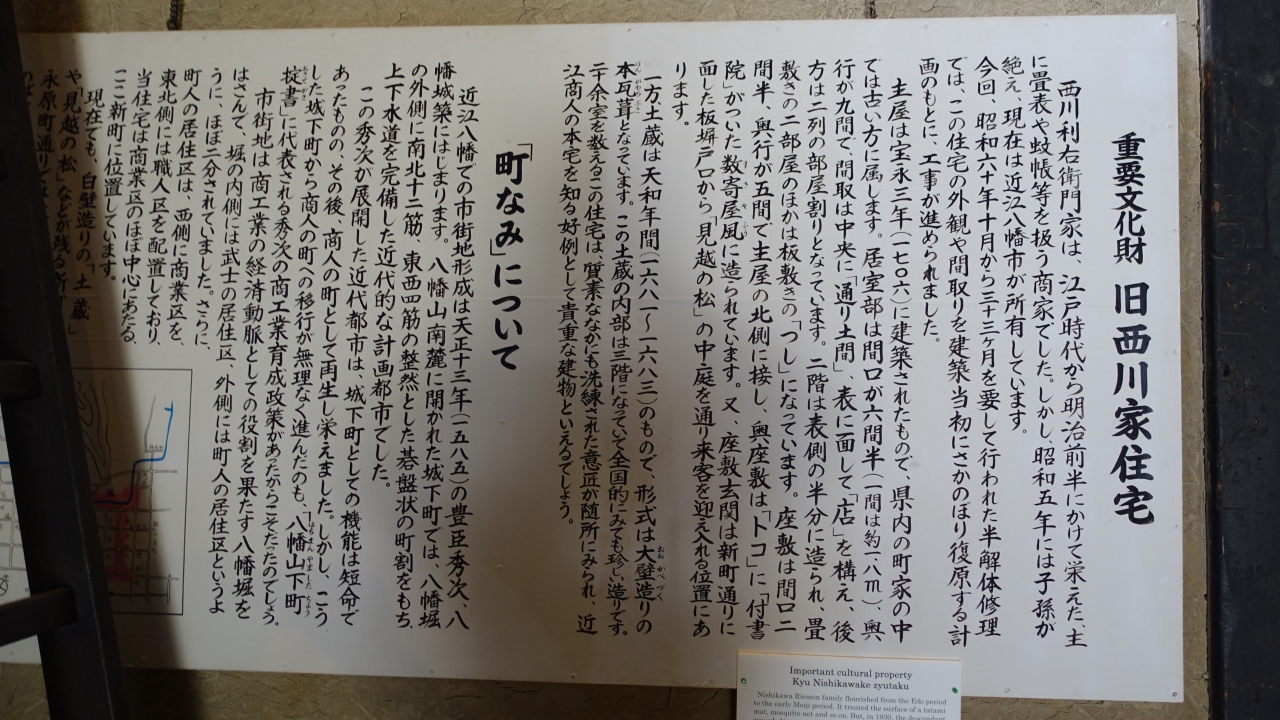 重要文化財 旧西川家住宅
西川利右衛門家は、江戸時代から明治前半にかけて栄えた、主
に畳表や蚊帳等を扱う商家でした。しかし、昭和五年には子孫が
絶え、現在は近江八幡市が所有しています。
今回、昭和六十年十月から三十三ヶ月を要して行われた半解体修理
では、この住宅の外観や間取りを建築当初にさかのぼり復原する計
画のもとに、工事が進められました。
主屋は宝永三年(一七〇六)に建築されたもので、県内の町家の中
では古い方に属します。居室部は間口が六間半(一間は約一・八m)、奥
行が九間で、間取は中央に「通り土間」、表に面して「店」を構え、後
方は二列の部屋割りとなっています。二階は表側の半分に造られ、畳
敷きの二部屋のほかは板敷きの、「つし」になっています。座敷は間口二
間半、奥行が五間で主屋の北側に接し、奥座敷は、「トコ」に「付書
院」がついた数寄屋風に造られています。又、座敷玄関は新町通りに
面した板塀戸口から「見越の松」の中庭を通り来客を迎え入れる位置にあ
ります。
一方土蔵は天和年間(一六八一〜一六八三)のもので、形式は大壁造りの
本瓦葺となっています。この土蔵の内部は三階になっていて全国的にみても珍しい造りです。
二十余室を数えるこの住宅は、質素ななかにも洗練された意匠が随所にみられ、近
江商人の本宅を知る好例として貴重な建物といえるでしょう。
「町なみ」について
近江八幡での市街地形成は天正十三年(一五八五)の豊臣秀次、八
幡城築にはじまります。八幡山南麓に開かれた城下町では、八幡堀
の外側に南北十二筋、東西四筋の整然とした碁盤状の町割をもち、
上下水道を完備した近代的な計画都市でした。
この秀次が展開した近代都市は、城下町としての機能は短命で
あったものの、その後、商人の町として再生し栄えました。しかし、こう
した城下町から商人の町への移行が無理なく進んだのも、八幡山下町
掟書」に代表される秀次の商工業育成政策があったからこそだったのでしょう。
市街地は商工業の経済動脈としての役割を果たす八幡堀を
はさんで、堀の内側には武士の居住区、外側には町人の居住区というよ
うに、ほぼ二分されていました。さらに、
町人の居住区は、西側に商業区を、
東北側には職人区を配置しており、
当住宅は商業区のほぼ中心にあたる、
ここ新町に位置しています。
現在でも、白壁造りの「土蔵」
や「見越の松」などが残る新
永原町通り
Important cultural property
Kyu Nishikawake zyutaku
Nishikawa Riemon family flourished from the Edo period
to the early Meiji period. It treated the surface of a tatami
mat, mosquito net and so on. But, in 1930, the descendant